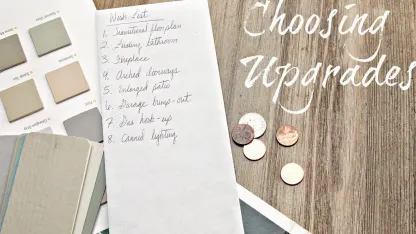 Wish List
1. Transitional floor plan
2. Luxury bathroom
3. Fireplace
4. Arched doorways
5. Enlarged patio
6. Garage bump-out
7. Gas hook-up
8. Canned lighting
Choosing
Upgrades